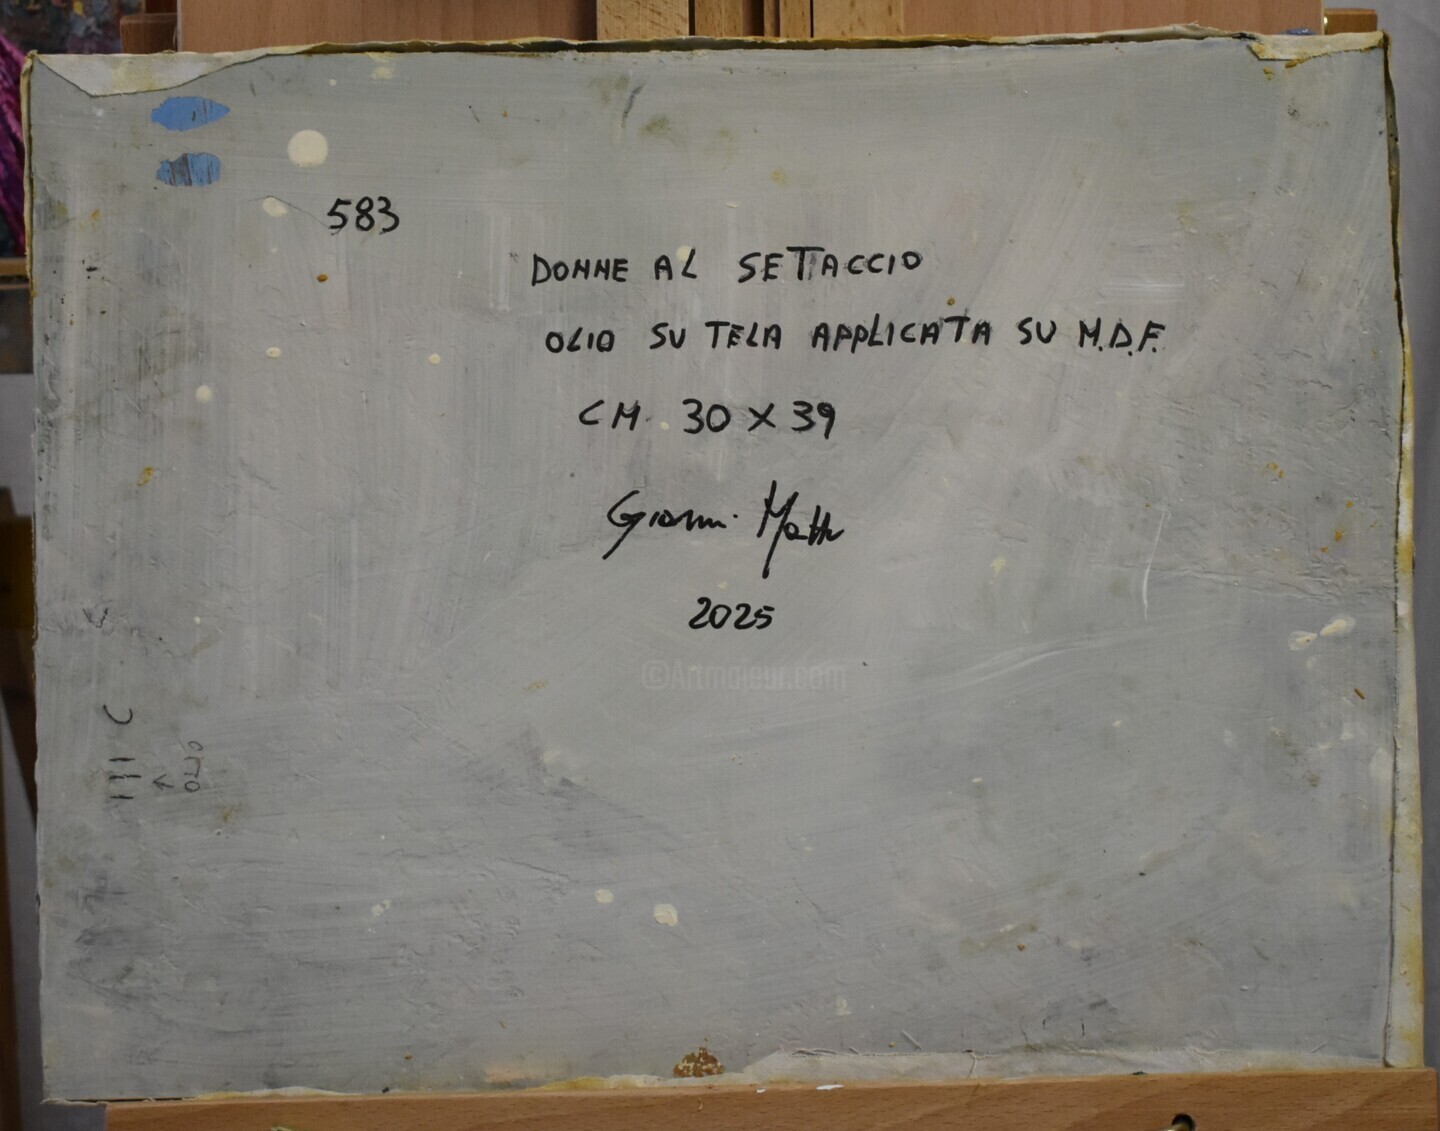 583
DONNE AL SETACCIO
OLIO SU TELA APPLICATA SU M.D.F.
CM. 30 X 39
Gianni Mattu
2025
©Artmajeur.com